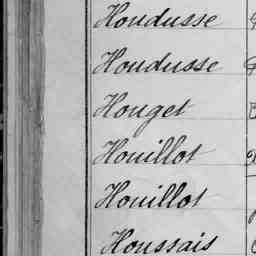 Houdusse
Houdusse
Houget
Houillot
Houillot
Houssais